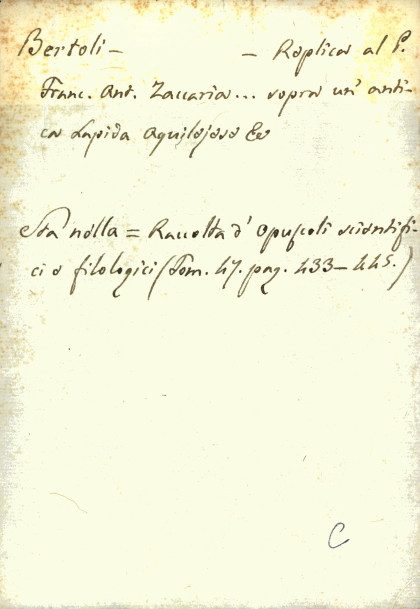 Bertoli — — Replica al P.
Franc. Ant. Zaccaria... sopra un' anti-
ca Lapida Aquilejese &c
Sta nella = Raccolta d' Opuscoli scientifi-
ci e filologici (Tom. 47. pag. 433—445.)
C